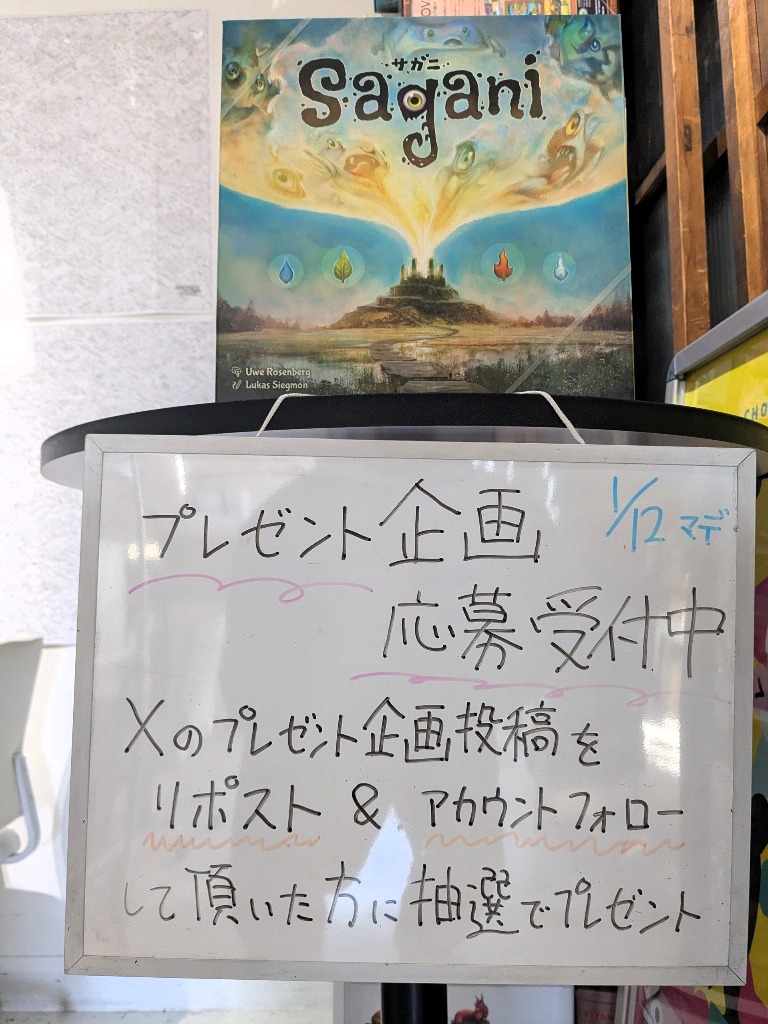 サガニ
Sagani
Uwe Rosenberg
Lukas Siegmon
プレゼント企画
1/12 マデ
応募受付中
Xのプレゼント企画投稿を
リポスト & アカウントフォロー
して頂いた方に抽選でプレゼント
CHO